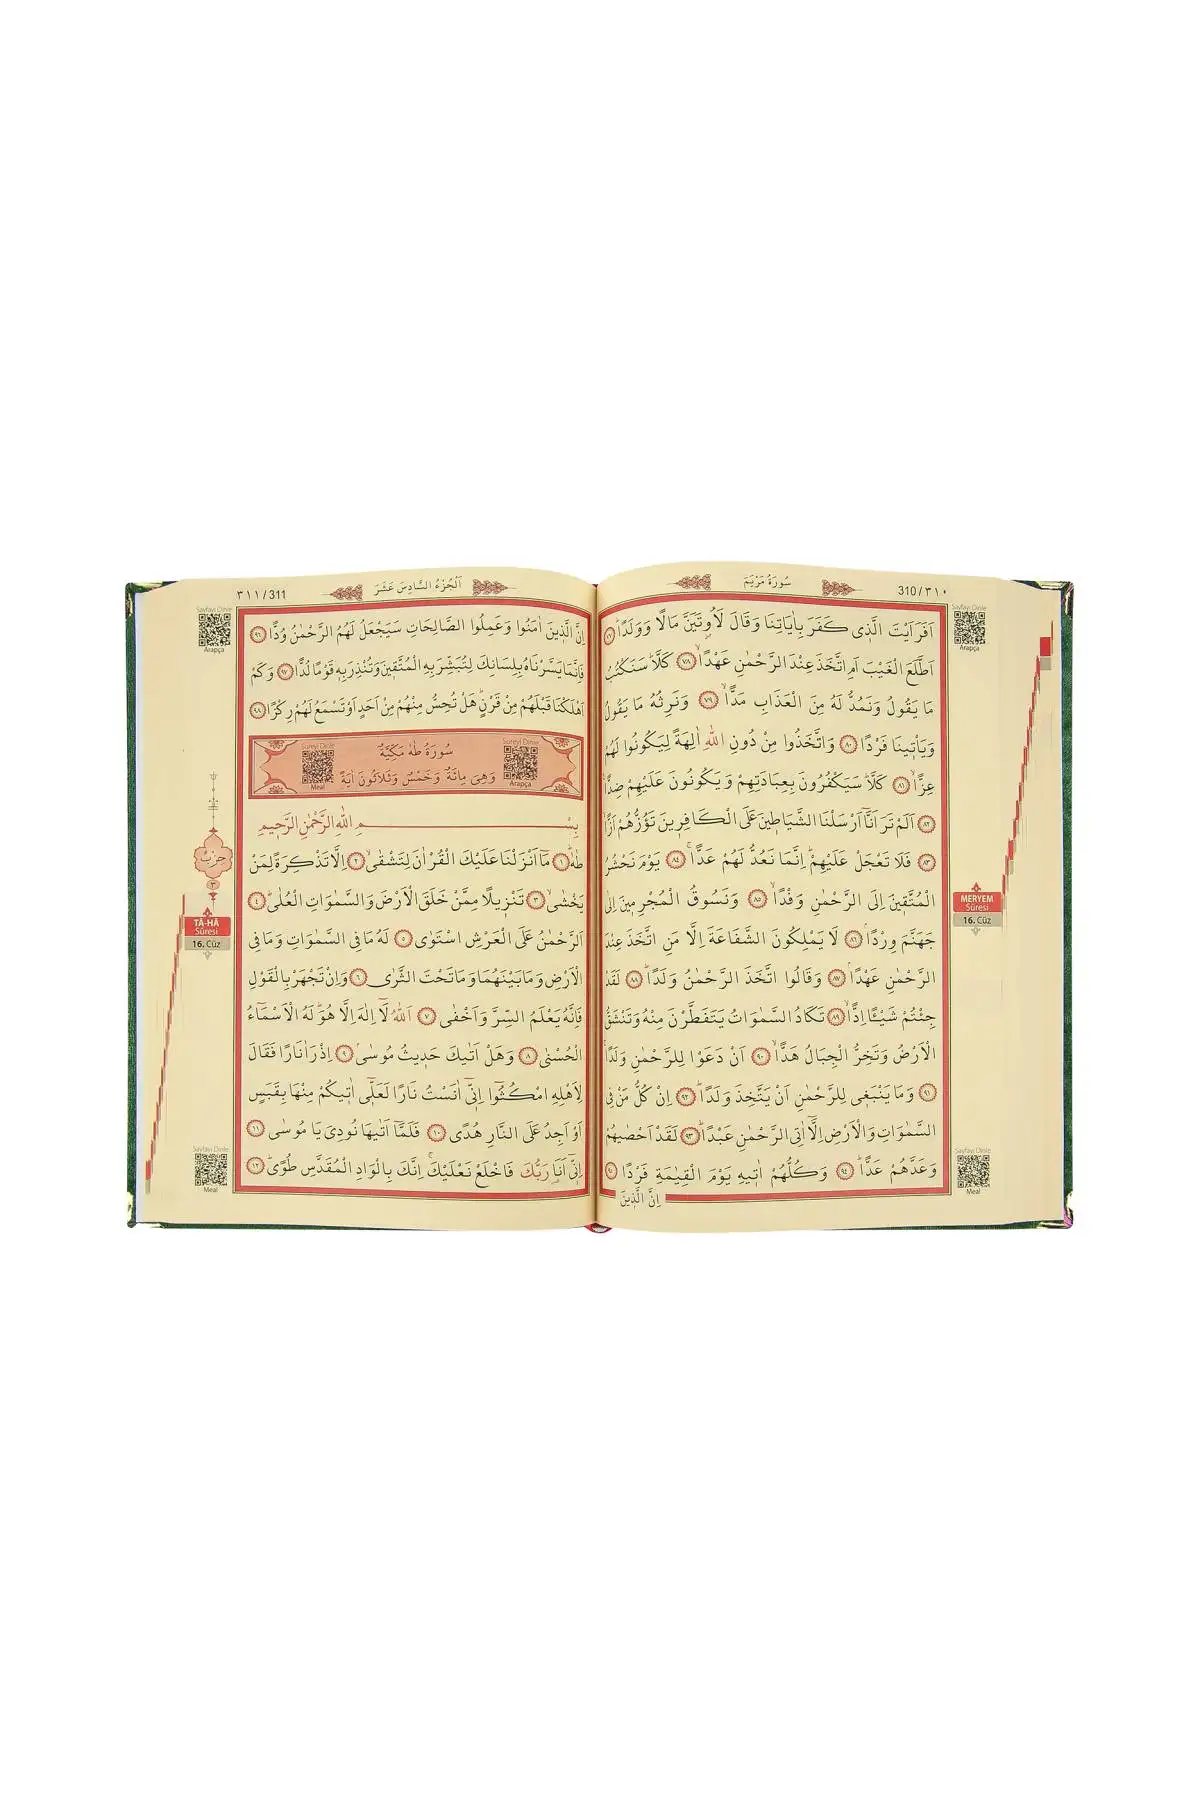 310/٣١٠
سُورَةُ مَرْيَمَ
Sayfayı Dinle
Arapça
اَفَرَاَيْتَ الَّذ۪ي كَفَرَ بِاٰيَاتِنَا وَقَالَ لَاُو۫تَيَنَّ مَالًا وَوَلَدًاۜ ﴿٧٧﴾
اَطَّلَعَ الْغَيْبَ اَمِ اتَّخَذَ عِنْدَ الرَّحْمٰنِ عَهْدًاۙ ﴿٧٨﴾ كَلَّاۜ سَنَكْتُبُ
مَا يَقُولُ وَنَمُدُّ لَهُ مِنَ الْعَذَابِ مَدًّاۙ ﴿٧٩﴾ وَنَرِثُهُ مَا يَقُولُ
وَيَأْت۪ينَا فَرْدًا ﴿٨٠﴾ وَاتَّخَذُوا مِنْ دُونِ اللّٰهِ اٰلِهَةً لِيَكُونُوا لَهُمْ
عِزًّاۙ ﴿٨١﴾ كَلَّاۜ سَيَكْفُرُونَ بِعِبَادَتِهِمْ وَيَكُونُونَ عَلَيْهِمْ ضِدًّا
﴿٨٢﴾ اَلَمْ تَرَ اَنَّٓا اَرْسَلْنَا الشَّيَاط۪ينَ عَلَى الْكَافِر۪ينَ تَؤُزُّهُمْ اَزًّا
﴿٨٣﴾ فَلَا تَعْجَلْ عَلَيْهِمْۜ اِنَّمَا نَعُدُّ لَهُمْ عَدًّاۚ ﴿٨٤﴾ يَوْمَ نَحْشُرُ
الْمُتَّق۪ينَ اِلَى الرَّحْمٰنِ وَفْدًاۙ ﴿٨٥﴾ وَنَسُوقُ الْمُجْرِم۪ينَ اِلٰى
جَهَنَّمَ وِرْدًاۢ ﴿٨٦﴾ لَا يَمْلِكُونَ الشَّفَاعَةَ اِلَّا مَنِ اتَّخَذَ عِنْدَ
الرَّحْمٰنِ عَهْدًاۢ ﴿٨٧﴾ وَقَالُوا اتَّخَذَ الرَّحْمٰنُ وَلَدًاۜ ﴿٨٨﴾ لَقَدْ
جِئْتُمْ شَيْـًٔا اِدًّاۙ ﴿٨٩﴾ تَكَادُ السَّمٰوَاتُ يَتَفَطَّرْنَ مِنْهُ وَتَنْشَقُّ
الْاَرْضُ وَتَخِرُّ الْجِبَالُ هَدًّاۙ ﴿٩٠﴾ اَنْ دَعَوْا لِلرَّحْمٰنِ وَلَدًاۚ
﴿٩١﴾ وَمَا يَنْبَغ۪ي لِلرَّحْمٰنِ اَنْ يَتَّخِذَ وَلَدًاۜ ﴿٩٢﴾ اِنْ كُلُّ مَنْ فِي
السَّمٰوَاتِ وَالْاَرْضِ اِلَّٓا اٰتِي الرَّحْمٰنِ عَبْدًاۜ ﴿٩٣﴾ لَقَدْ اَحْصٰيهُمْ
وَعَدَّهُمْ عَدًّاۜ ﴿٩٤﴾ وَكُلُّهُمْ اٰت۪يهِ يَوْمَ الْقِيٰمَةِ فَرْدًا ﴿٩٥﴾
اِنَّ الَّذ۪ينَ
MERYEM
Sûresi
16. Cüz
Sayfayı Dinle
Meal
٣١١/311
اَلْجُزْءُ السَّادِسَ عَشَرَ
Sayfayı Dinle
Arapça
اِنَّ الَّذ۪ينَ اٰمَنُوا وَعَمِلُوا الصَّالِحَاتِ سَيَجْعَلُ لَهُمُ الرَّحْمٰنُ وُدًّا ﴿٩٦﴾
فَاِنَّمَا يَسَّرْنَاهُ بِلِسَانِكَ لِتُبَشِّرَ بِهِ الْمُتَّق۪ينَ وَتُنْذِرَ بِه۪ قَوْمًا لُدًّا ﴿٩٧﴾ وَكَمْ
اَهْلَكْنَا قَبْلَهُمْ مِنْ قَرْنٍۜ هَلْ تُحِسُّ مِنْهُمْ مِنْ اَحَدٍ اَوْ تَسْمَعُ لَهُمْ رِكْزًا ﴿٩٨﴾
Sureyi Dinle
Meal
سُورَةُ طٰهٰ مَكِّيَّةٌ
وَهِيَ مِائَةٌ وَخَمْسٌ وَثَلَاثُونَ اٰيَةً
Sureyi Dinle
Arapça
بِسْمِ اللّٰهِ الرَّحْمٰنِ الرَّح۪يمِ
طٰهٰۜ ﴿١﴾ مَٓا اَنْزَلْنَا عَلَيْكَ الْقُرْاٰنَ لِتَشْقٰىۙ ﴿٢﴾ اِلَّا تَذْكِرَةً لِمَنْ
يَخْشٰىۙ ﴿٣﴾ تَنْز۪يلًا مِمَّنْ خَلَقَ الْاَرْضَ وَالسَّمٰوَاتِ الْعُلٰىۜ ﴿٤﴾
اَلرَّحْمٰنُ عَلَى الْعَرْشِ اسْتَوٰى ﴿٥﴾ لَهُ مَا فِي السَّمٰوَاتِ وَمَا فِي
الْاَرْضِ وَمَا بَيْنَهُمَا وَمَا تَحْتَ الثَّرٰى ﴿٦﴾ وَاِنْ تَجْهَرْ بِالْقَوْلِ
فَاِنَّهُ يَعْلَمُ السِّرَّ وَاَخْفٰى ﴿٧﴾ اَللّٰهُ لَٓا اِلٰهَ اِلَّا هُوَۜ لَهُ الْاَسْمَٓاءُ
الْحُسْنٰى ﴿٨﴾ وَهَلْ اَتٰيكَ حَد۪يثُ مُوسٰىۢ ﴿٩﴾ اِذْ رَاٰ نَارًا فَقَالَ
لِاَهْلِهِ امْكُـثُٓوا اِنّ۪ٓي اٰنَسْتُ نَارًا لَعَلّ۪ٓي اٰت۪يكُمْ مِنْهَا بِقَبَسٍ
اَوْ اَجِدُ عَلَى النَّارِ هُدًى ﴿١٠﴾ فَلَمَّٓا اَتٰيهَا نُودِيَ يَا مُوسٰى ﴿١١﴾
اِنّ۪ٓي اَنَا۬ رَبُّكَ فَاخْلَعْ نَعْلَيْكَۚ اِنَّكَ بِالْوَادِ الْمُقَدَّسِ طُوًىۜ ﴿١٢﴾
حِزْبٌ
٣
TÂ-HÂ
Sûresi
16. Cüz
Sayfayı Dinle
Meal